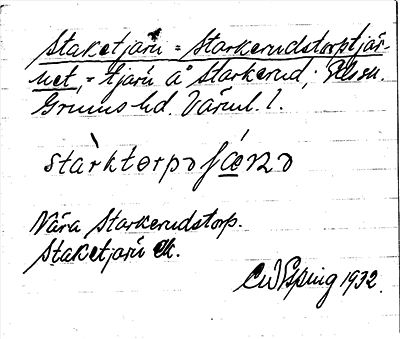 Staketjärn = Starkerudstorptjär-
net, = tjärn å Starkerud;
Grums hd. Värml. l.
stàrktorpə ʃæ̀ɳə
Nära Starkerudstorp.
Staketjärn ek.
1932.